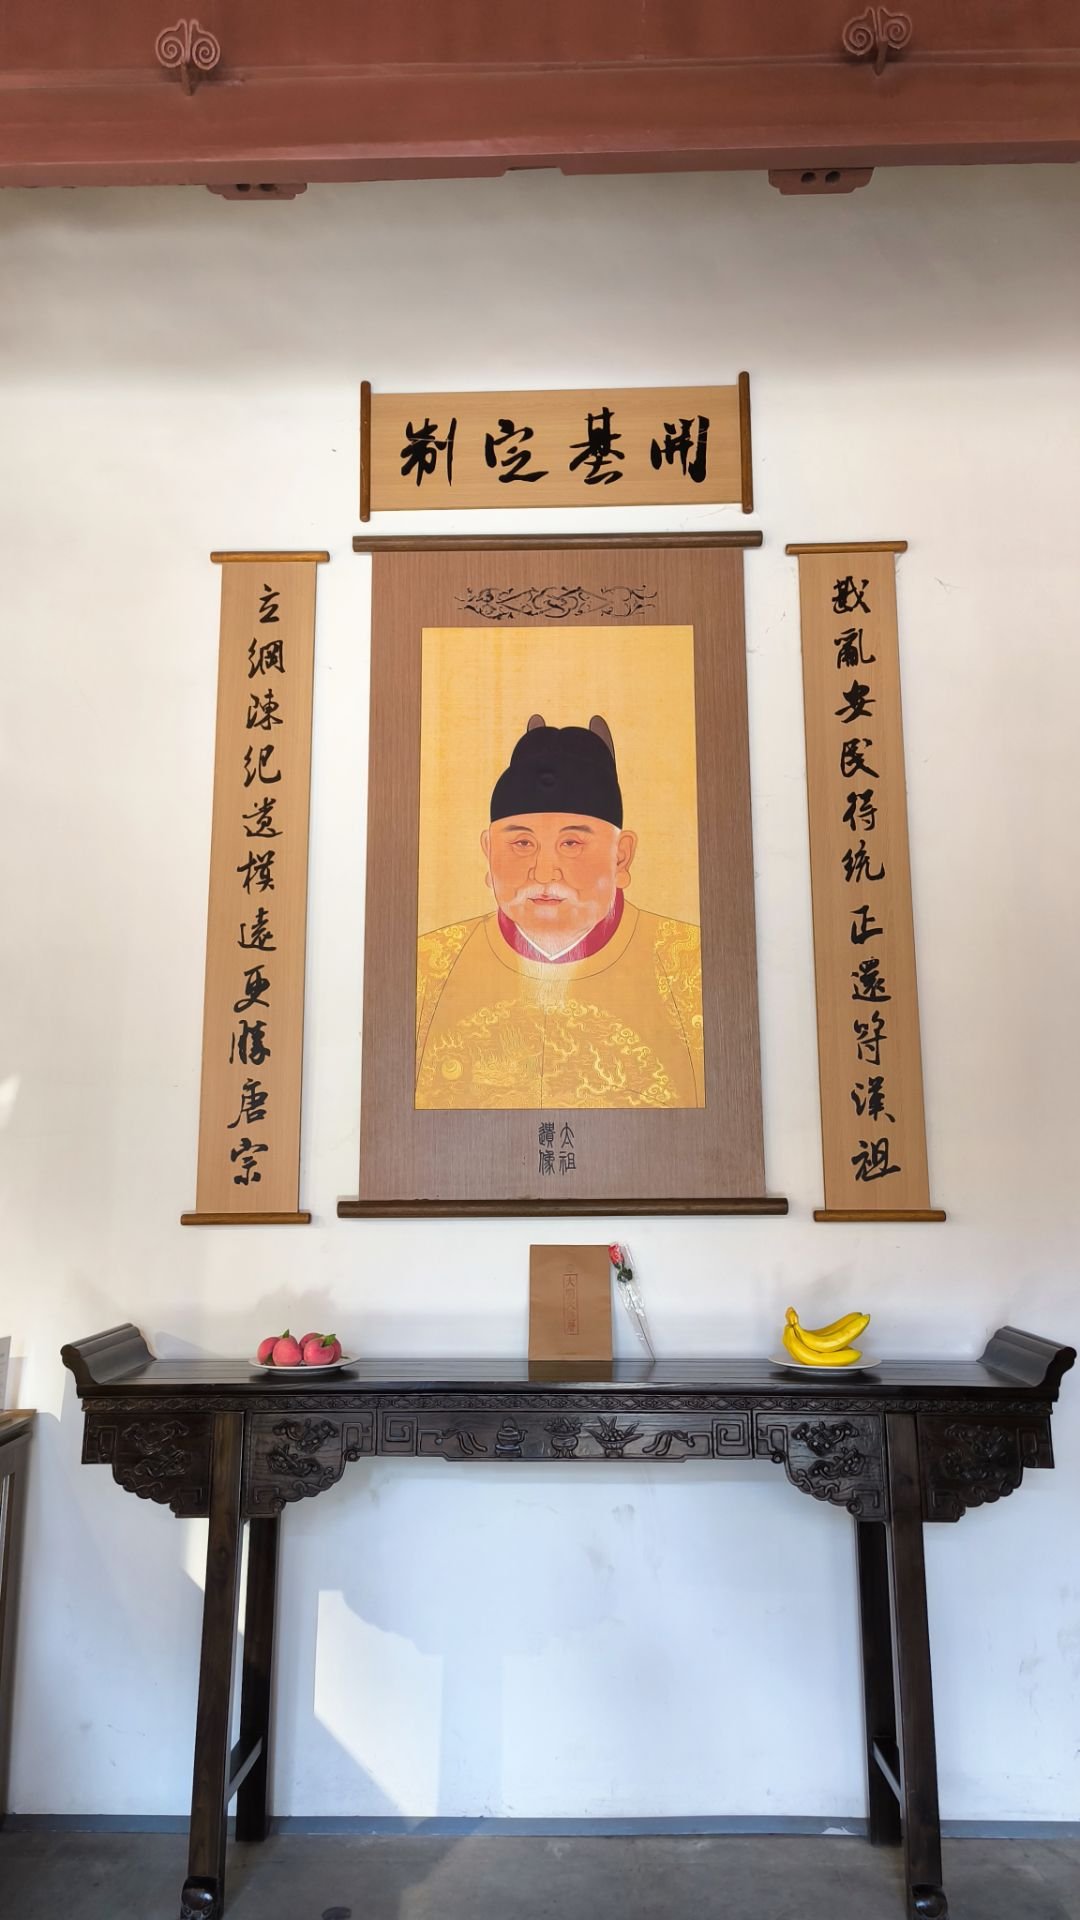 開基定制
戡亂安民得統正還符漢祖
立綱陳紀遺模遠更勝唐宗
太祖
遺像